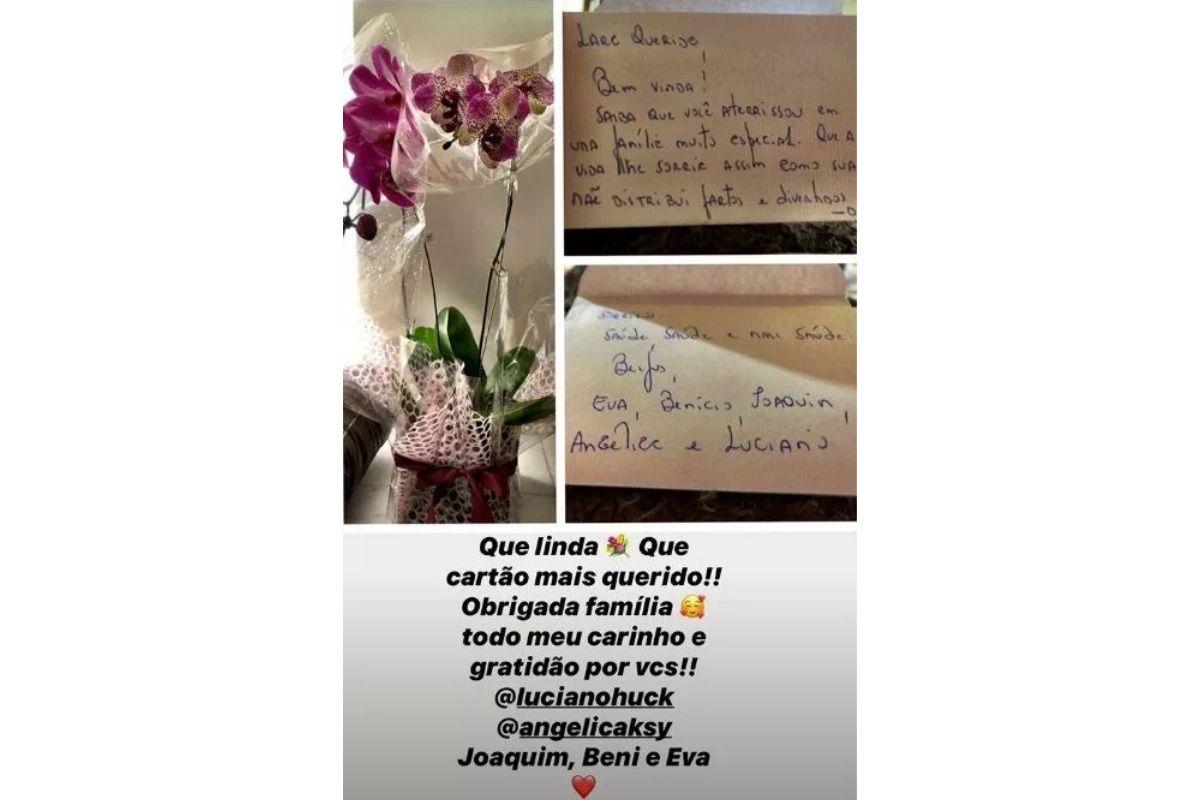 LARA QUERIDA,
Bem VINDA!
SAIBA QUE VOCÊ ATERRISSOU em
UMA família muito especial. QUE A
VIDA lhe SORRIA ASSIM como SUA
MÃE DISTRIBUI fartos e divertidos
SORRISOS.
SAÚDE, SAÚDE e MAIS SAÚDE.
Beijos,
EVA, Benício, JOAQUIM,
ANGÉLICA e LUCIANO
Que linda 💐 Que
cartão mais querido!!
Obrigada família 🥰
todo meu carinho e
gratidão por vcs!!
@lucianohuck
@angelicaksy
Joaquim, Beni e Eva
❤️